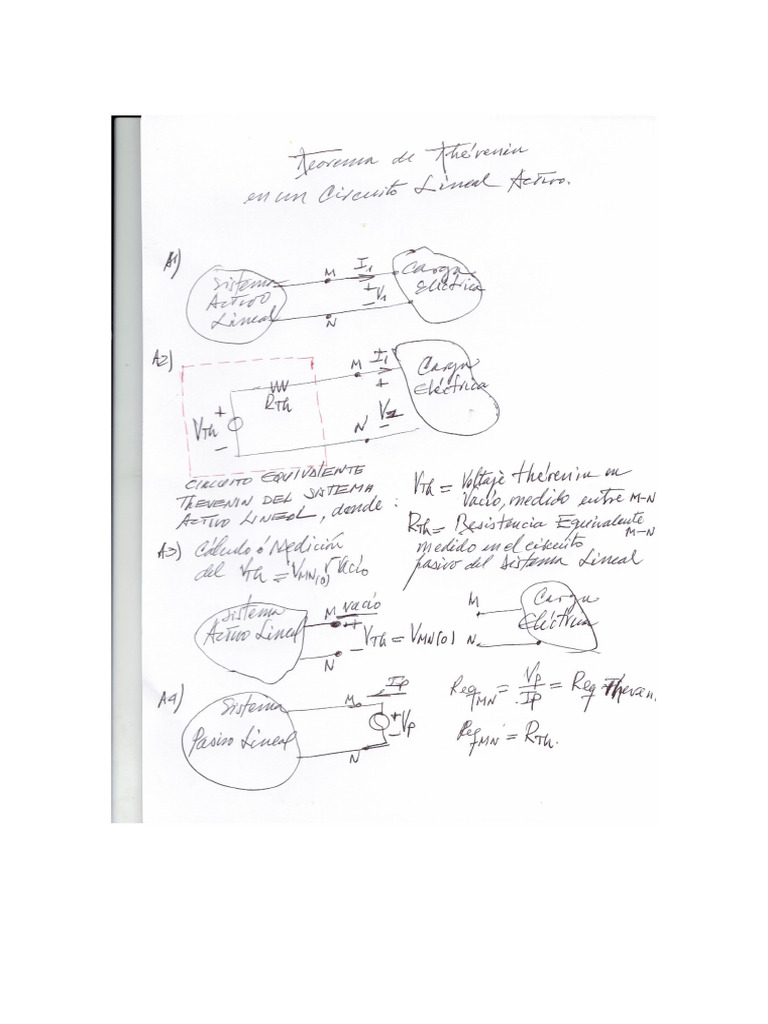 Teorema de Thévenin
en un Circuito Lineal Activo.
A1)
Sistema
Activo
Lineal
M
I1
+
V1
-
N
Carga
Eléctrica
A2)
VTh
+
-
RTh
M
I1
+
V2
-
N
Carga
Eléctrica
CIRCUITO EQUIVALENTE
THEVENIN DEL SISTEMA
ACTIVO LINEAL, donde :
VTh = Voltaje thévenin en
vacío, medido entre M-N
RTh = Resistencia Equivalente
M-N
medido en el circuito
pasivo del Sistema Lineal
A3) Cálculo ó Medición
del VTh = VMN(0) vacío
Sistema
Activo Lineal
M vacío
+
VTh = VMN(0)
-
N
M
N
Carga
Eléctrica
A4)
Sistema
Pasivo Lineal
M
Ip
+
Vp
-
N
ReqMN = Vp/Ip = Req Theven.
ReqMN = RTh.